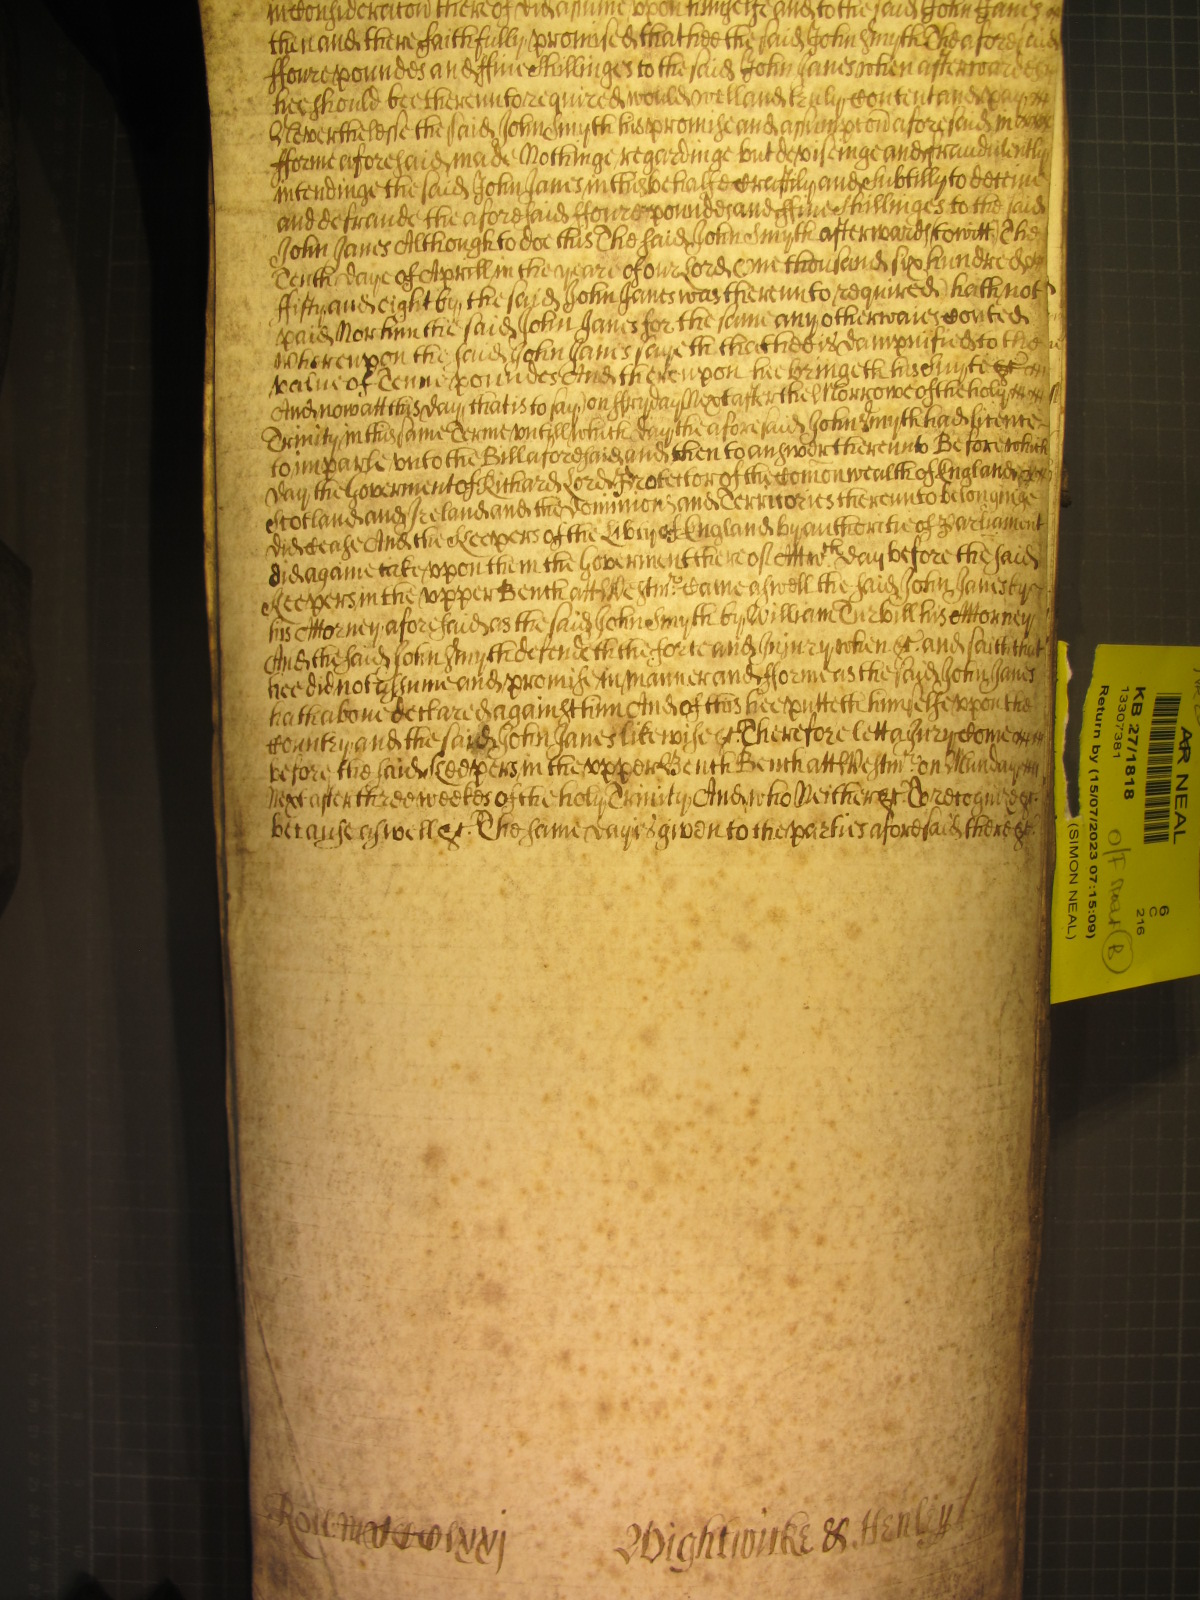 in Consideracion thereof did assume upon himselfe and to the said John Janes
then and there faithfully promise that hee the said John Smyth The aforesaid
ffoure poundes and ffive Shillinges to the said John Janes when afterwardes
hee should bee thereunto required would well and truly Content and pay
Neverthelesse the said John Smyth his promise and assumpcon aforesaid in
fforme aforesaid made Nothinge regardinge but deviseinge and fraudulently
intendinge the said John Janes in this behalfe Craftily and Subtilly to deceive
and defraude the aforesaid ffoure poundes and ffive Shillinges to the said
John Janes Although to doe this The said John Smyth afterwards (to witt) The
Tenth daye of Aprill in the yeare of our Lord One thousand six hundred
fifty and eight by the said John Janes was thereunto required hath not
paid Nor him the said John Janes for the same any otherwaies Conted
Whereupon the said John Janes sayeth that hee is dampnified to the
value of Tenne poundes And thereupon hee bringeth his Suyte &c
And now att this day that is to say on ffryday Next after the Morrowe of the holy
Trinity in this same Terme untill which day the aforesaid John Smyth had licence
to imparle unto the Bill aforesaid and then to answer thereunto Before which
day the Goverment of Richard Lord Protector of the Comonwealth of England
Scotland and Ireland and the Dominions and Territories thereunto belonginge
did cease And the Keepers of the Liberty of England by authoritie of Parliament
did againe take upon them the Goverment thereof Att wch day before the said
Keepers in the upper Bench att Westmr Came aswell the said John Janes by
his Attorney aforesaid as the said John Smyth by William Turvill his Attorney
And the said John Smyth defendeth the force and Injury when &c. and saith that
hee did not Assume and promise In manner and fforme as the said John Janes
hath above declared against him And of this hee putteth himselfe upon the
Country and the said John Janes likewise &c Therefore lett a Jury Come
before the said Keepers in the upper Bench Bench att Westmr on Munday
Next after three weekes of the holy Trinity And who Neither &c. To recognize &c.
because aswell &c. The same day is given to the parties aforesaid there &c.
Roll
Wightwicke & Henley
AR NEAL
KB 27/1818
13307381
Return by (15/07/2023 07:15:09)
(SIMON NEAL)
6
C
216
B